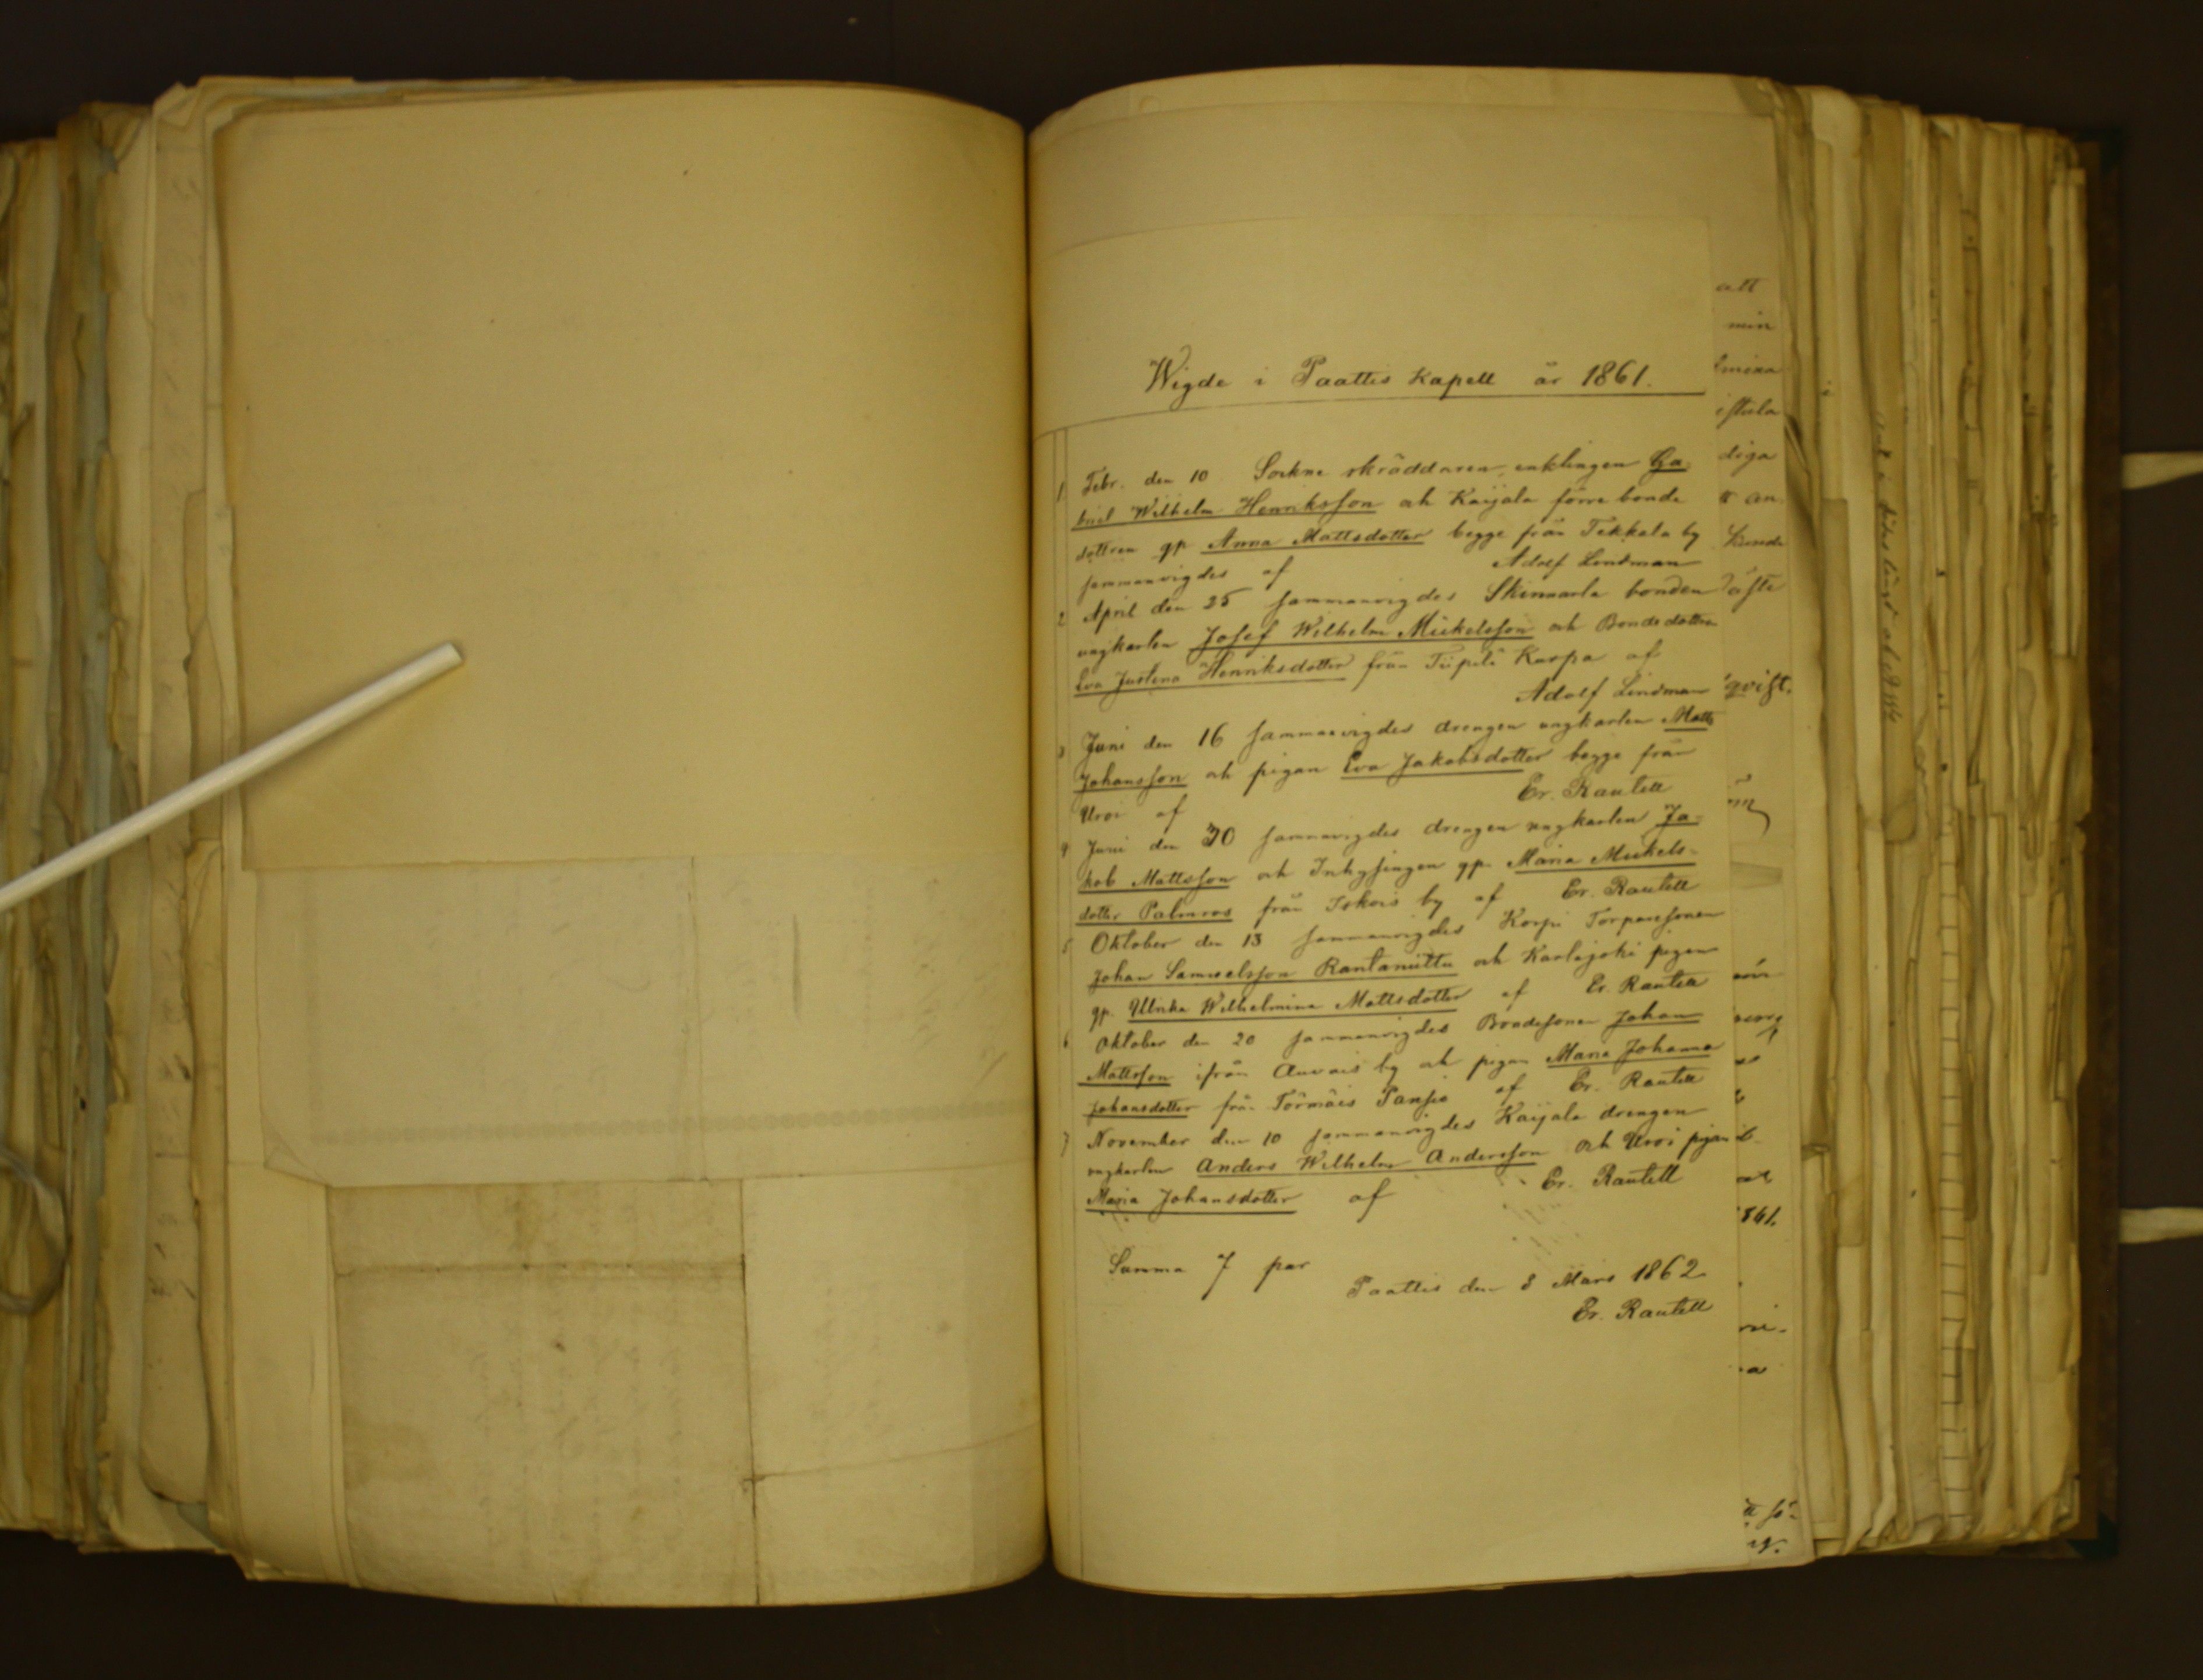 Wigde i Paattis Kapell år 1861.
1 Febr. den 10 Sockne skräddaren, enklingen Ga-
briel Wilhelm Henriksson och Kaijala förre bonde
dottren gp Anna Mattsdotter begge från Tekkala by
sammanvigdes af Adolf Lindman
2 April den 25 sammanvigdes Skinnarla bonden
ungkarlen Josef Wilhelm Mickelsson och Bondedottren
Eva Justina Henriksdotter från Tiipilä Kurpa af
Adolf Lindman
3 Juni den 16 sammanvigdes drengen ungkarlen Matts
Johansson och pigan Eva Jakobsdotter begge från
Uroi af Er. Rautell
4 Juni den 30 sammanvigdes drengen ungkarlen Ja-
kob Mattsson och Inhysingen gp. Maria Mickels-
dotter Palmros från Iskois by af Er. Rautell
5 Oktober den 13 sammanvigdes Korpi Torparesonen
Johan Samuelsson Rantaniittu och Karlejoki pigan
gp. Ulrika Wilhelmina Mattsdotter af Er. Rautell
6 Oktober den 20 sammanvigdes Bondesonen Johan
Mattsson ifrån Auvais by och pigan Maria Johanna
Johansdotter från Törmäis Pansio af Er. Rautell
7 November den 10 sammanvigdes Kaijala drengen
ungkarlen Anders Wilhelm Andersson och Uroi pigan
Maria Johansdotter af Er. Rautell
Summa 7 par
Paattis den 8 Mars 1862
Er. Rautell
att
min
diga
qvist.